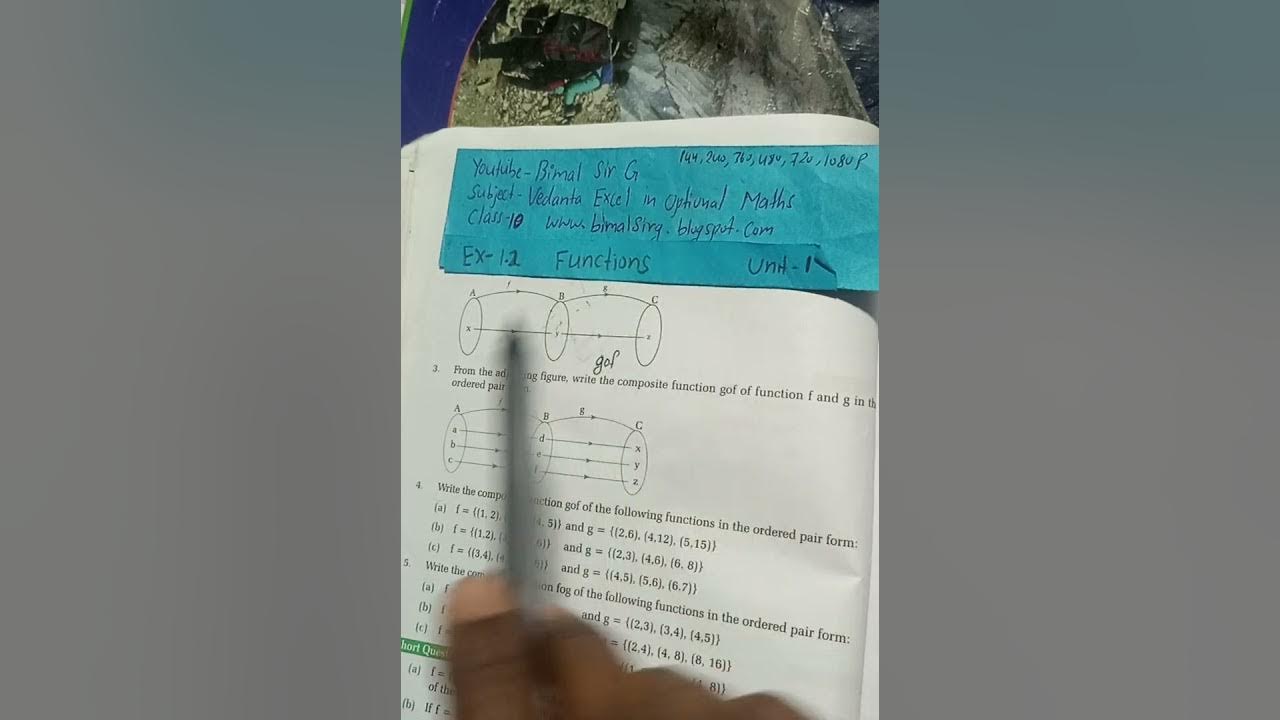 144, 240, 360, 480, 720, 1080P
Youtube - Bimal Sir G
Subject - Vedanta Excel in Optional Maths
Class-10 www.bimalsirg.blogspot.com
Ex- 1.2 Functions Unit - 1
f g
A B C
x y z
gof
3. From the figure, write the composite function gof of function f and g in
ordered pair
f
A B g C
a d x
b e y
c f z
4. Write the function gof of the following functions in the ordered pair form:
(a) f = {(1, 2), 5)} and g = {(2,6), (4,12), (5,15)}
(b) f = {(1,2), 6)} and g = {(2,3), (4,6), (6, 8)}
(c) f = {(3,4), and g = {(4,5), (5,6), (6,7)}
5. Write the fog of the following functions in the ordered pair form:
(a) and g = {(2,3), (3,4), (4,5)}
(b) f = {(2,4), (4, 8), (8, 16)}
(c) f = 8)}
(a) f =
of the
(b) If f =